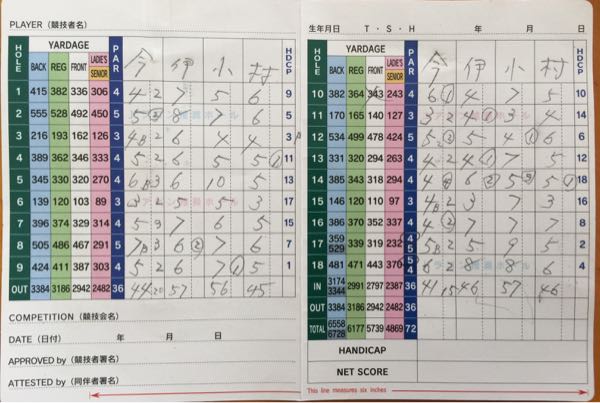 PLAYER (競技者名)
HOLE YARDAGE PAR 今 伊 小 村 HDCP
BACK REG FRONT LADIE'S SENIOR
1 415 382 336 306 4 4 2 7 5 6 9
2 555 528 492 450 5 5 ② 8 7 6
3 216 193 162 126 3 4B 2 6 4 4 3
4 389 362 346 333 4 5 2 6 5 5 ① 11
5 345 330 320 270 4 6B 3 6 10 5 13
6 139 120 103 89 3 3 2 5 5 3 17
7 396 374 329 314 4 5 3 7 6 5 15
8 505 486 467 291 5 7B 3 6 ② 7 6 7
9 424 411 387 303 4 5 2 6 7 ① 5 1
OUT 3384 3186 2942 2482 36 44 20 57 56 45
COMPETITION (競技会名)
DATE (日付) 年 月 日
APPROVED by (競技者署名)
ATTESTED by (同伴者署名)
生年月日 T・S・H 年 月 日
HOLE YARDAGE PAR 今 伊 小 村 HDCP
BACK REG FRONT LADIE'S SENIOR
10 382 364 343 243 4 6 ① 4 7 5 10
11 170 165 140 127 3 3 2 4 ① 3 4 14
12 534 499 478 424 5 5 2 5 4 ① 6 6
13 331 320 294 263 4 4 2 4 ① 7 5 12
14 385 344 315 294 4 4 6 ② 5 5 ① 18
15 146 120 110 97 3 4B 2 3 7 3 16
16 386 370 352 337 4 4 ② 7 7 7 8
17 359 529 339 319 232 4 5 5B 2 5 9 5 2
18 481 471 443 370 5 4 6 2 8 8 6 4
IN 3174 3344 2991 2797 2387 36 41 15 46 57 46
OUT 3384 3186 2942 2482 36
TOTAL 6558 6728 6177 5739 4869 72
HANDICAP
NET SCORE
This line measures six inches